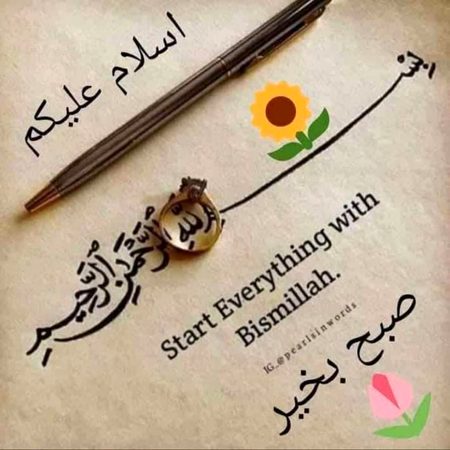 اسلام علیکم
بسم الله الرحمن الرحيم
Start Everything with
Bismillah.
IG_@pearlsinwords
صبح بخیر